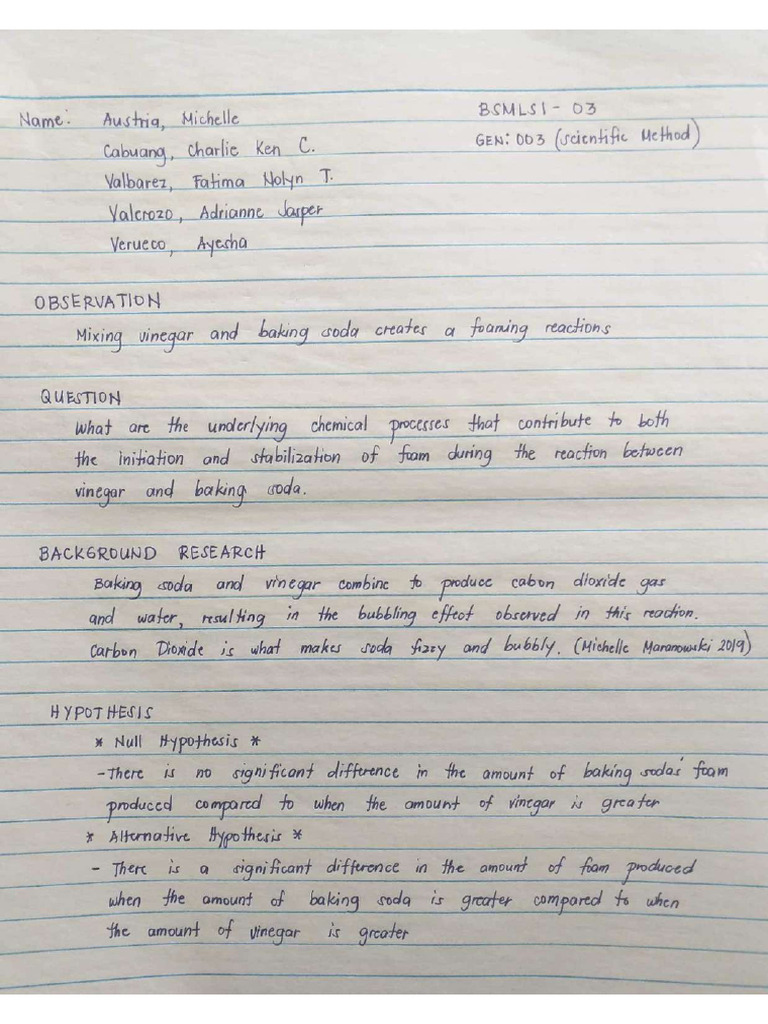 Name: Austria, Michelle
BSMLS1 - 03
Cabuang, Charlie Ken C.
GEN: 003 (Scientific Method)
Valbarez, Fatima Nolyn T.
Valcrozo, Adrianne Jasper
Verueco, Ayesha
OBSERVATION
Mixing vinegar and baking soda creates a foaming reactions
QUESTION
What are the underlying chemical processes that contribute to both
the initiation and stabilization of foam during the reaction between
vinegar and baking soda.
BACKGROUND RESEARCH
Baking soda and vinegar combine to produce cabon dioxide gas
and water, resulting in the bubbling effect observed in this reaction.
Carbon Dioxide is what makes soda fizzy and bubbly. (Michelle Maranowski 2019)
HYPOTHESIS
* Null Hypothesis *
- There is no significant difference in the amount of baking sodas' foam
produced compared to when the amount of vinegar is greater
* Alternative Hypothesis *
- There is a significant difference in the amount of foam produced
when the amount of baking soda is greater compared to when
the amount of vinegar is greater